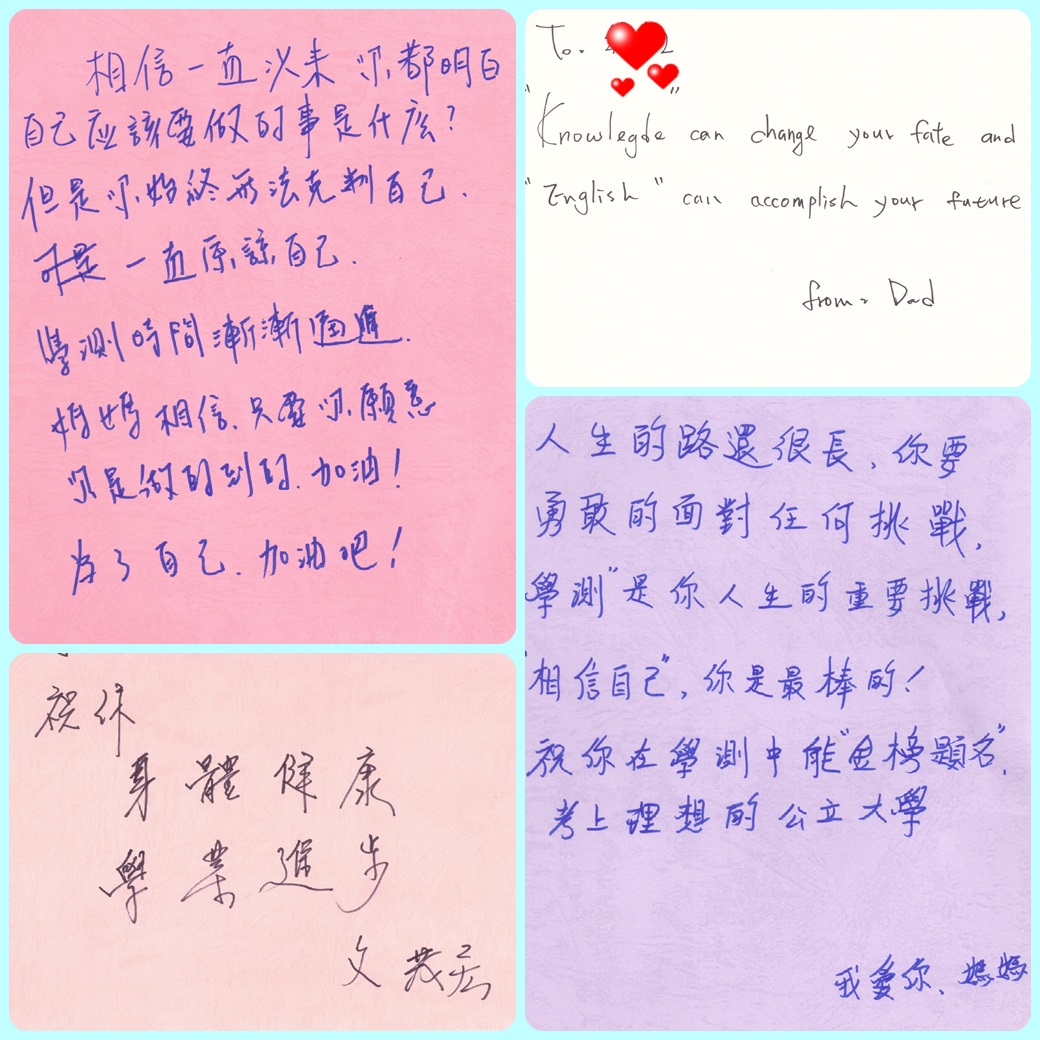 相信一直以來 你都明白
自己应該要做的事是什広?
但是你始終無法克制自己.
可是一直原諒自己.
學測時間漸漸逼進.
媽媽相信.只要你願意
你是做的到的.加油!
為了自己.加油吧!
To.
"Knowlegde" can change your fate and
"English" can accomplish your future
from: Dad
祝你
身體健康
學業進步
文
人生的路還很長,你要
勇敢的面對任何挑戰,
學測"是你人生的重要挑戰,
"相信自己",你是最棒的!
祝你在學測中能"金榜題名",
考上理想的公立大學
我愛你、媽媽